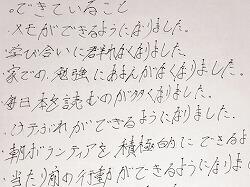 ○できていること
・メモができるようになりました。
・学び合いに群れなくなりました。
・家での勉強にあきんがなくなりました。
・毎日本を読むのが多くなりました。
・けテぶれができるようになりました。
・朝ボランティアを積極的にできるよ
・当たり前の行動ができるようになりまし